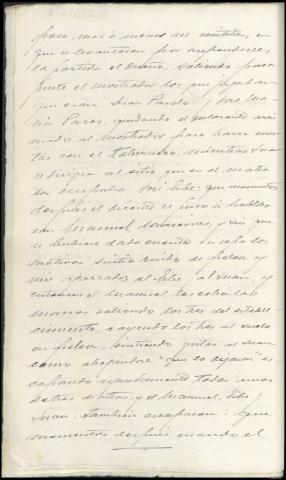 poco mas ó menos del
que se levantaron por
la partida el mismo, saliendo para
junto el mostrador los que jugaban
que eran Juan Pardo y José Ma-
ria Pazos, quedando el declarante arri-
mado al mostrador para hacer cuen-
tas con el tabernero, mientras Juan
se dirigia al sitio que en el mostra-
dor ocupaba José
despues el decente se puso á hablar
con Manuel y sin que
se hubiese dado cuenta de los
motivos sintió ruido de pelea y
vió agarrados al al Juan, y
entonces el Manuel les echó las
manos saliendo los tres del estable-
cimiento, cayendo los tres al suelo
en pelea, sintiendo gritos al Juan
como ahogándose "que lo dejaran" es-
capando rapidamente todos unos
detras de otros, y el Manuel,
Juan, tambien escaparon: Que
momentos después, cuando el